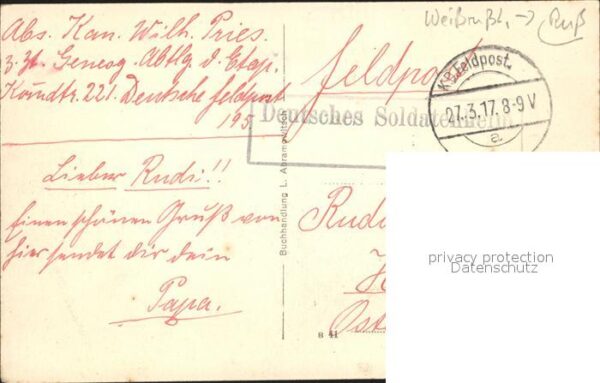 Abs. Kan. Wilh. Pries.
z. Zt. Genesg. Abtlg d. Etap.
Komdtr. 221. Deutsche Feldpost
195
Lieber Rudi!!
Einen schönen Gruß von
hier sendet dir dein
Papa.
Buchhandlung L. Abramowitsch
B 41
Weißrußl. → Ruß
Feldpost
K.D. Feldpost.
27.3.17.8-9V
a
Deutsches Soldatenheim
Rudi
Ost
privacy protection
Datenschutz